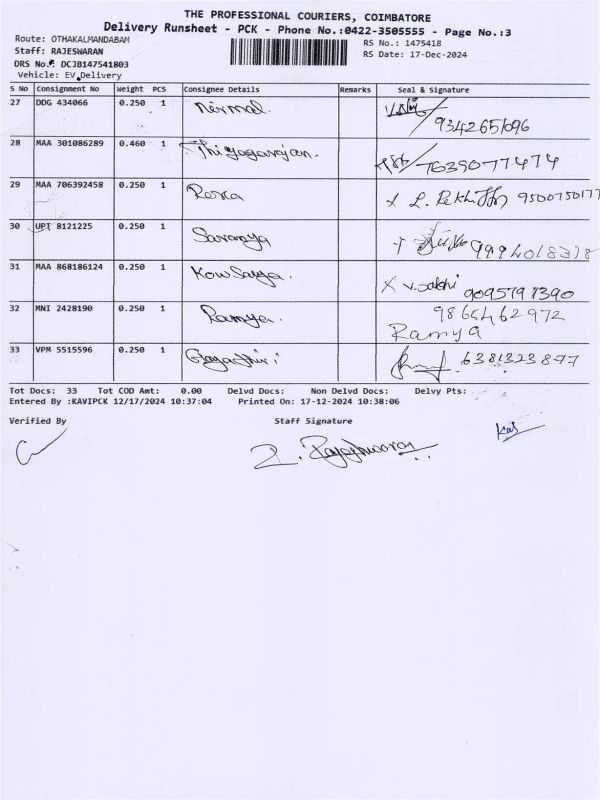 THE PROFESSIONAL COURIERS, COIMBATORE
Delivery Runsheet - PCK - Phone No.:0422-3505555 - Page No.:3
Route: OTHAKALMANDABAM RS No.: 1475418
Staff: RAJESWARAN RS Date: 17-Dec-2024
DRS No.: DCJB147541803
Vehicle: EV Delivery
S No Consignment No Weight PCS Consignee Details Remarks Seal & Signature
27 DDG 434066 0.250 1 Nirmal 9342651096
28 MAA 301086289 0.460 1 Thiyagarajan. 7639077474
29 MAA 706392458 0.250 1 Rexa X L. 9500750177
30 UPT 8121225 0.250 1 Saranya 9994018318
31 MAA 868186124 0.250 1 Kowsalya. X V. Sakthi 9095797390
32 MNI 2428190 0.250 1 Ramya. 9865462972
Ramya
33 VPM 5515596 0.250 1 Gayathiri 6381323877
Tot Docs: 33 Tot COD Amt: 0.00 Delvd Docs: Non Delvd Docs: Delvy Pts:
Entered By :KAVIPCK 12/17/2024 10:37:04 Printed On: 17-12-2024 10:38:06
Verified By Staff Signature
R. Rajeshwaran